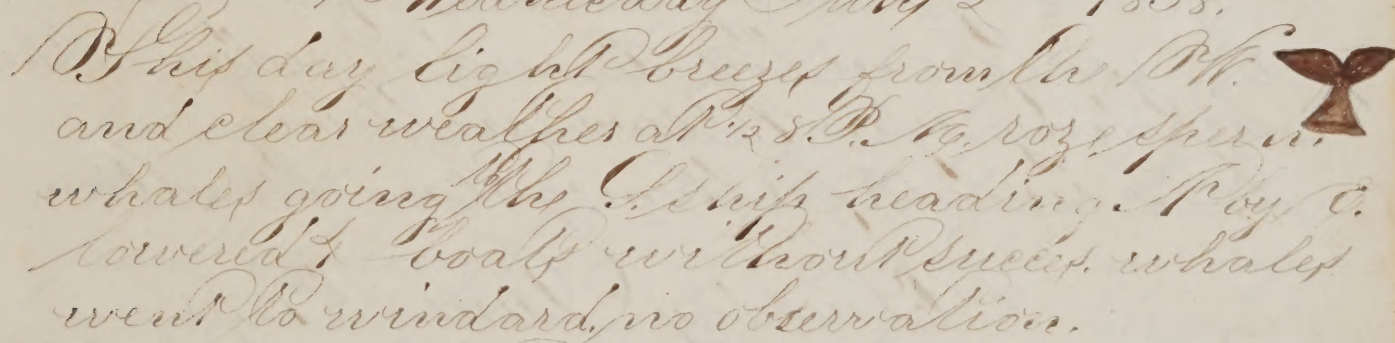 Wednesday 2 1838.
This day light breezes from the SW.
and clear weather at ½ 8 P. M. roze sperm
whales going the ship heading N by E.
lowered boats without succes. whales
went to windard, no observation.